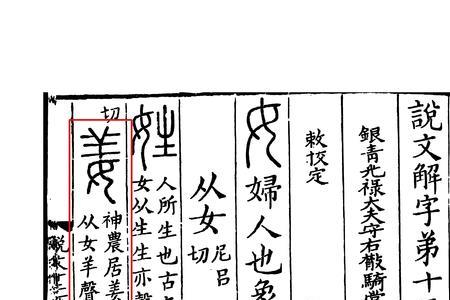 說文解字弟十
銀青光祿大夫守右散騎常
敕校定
女 婦人也象
从女 尼呂
切
姓 人所生也古
女从生生亦聲
切
姜 神農居姜
从女羊聲